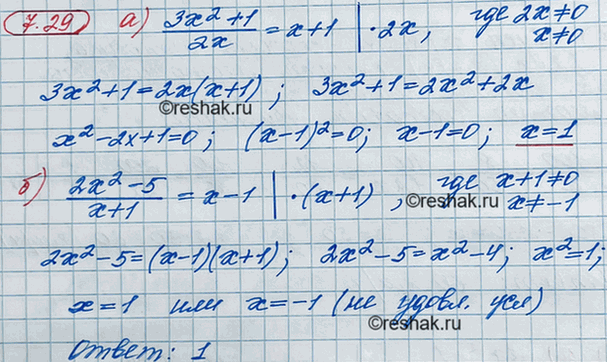 7.29 а) (3x²+1)/(2x) = x+1 | ·2x, где 2x≠0
x≠0
3x²+1=2x(x+1); 3x²+1=2x²+2x
©reshak.ru
x²-2x+1=0; (x-1)²=0; x-1=0; x=1
б) (2x²-5)/(x+1) = x-1 | ·(x+1), где x+1≠0
©reshak.ru x≠-1
2x²-5=(x-1)(x+1); 2x²-5=x²-4; x²=1;
x=1 или x=-1 (не удовл. усл)
©reshak.ru
Ответ: 1